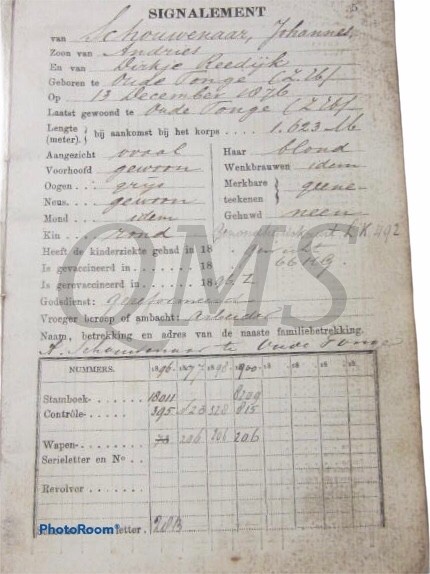 SIGNALEMENT
5
van Schouwenaar, Johannes.
Zoon van Andries
En van Dirkje Reedijk
Geboren te Oude Tonge (Z.H)
Op 13 December 1876
Laatst gewoond te Oude Tonge (Z.H)
Lengte (meter). bij aankomst bij het korps . . . 1.623 M
Aangezicht ovaal Haar blond
Voorhoofd gewoon Wenkbrauwen idem
Oogen . . grijs Merkbare teekenen geene
Neus. . . gewoon
Mond . . idem Gehuwd . . . neen
Kin . . . rond
Heeft de kinderziekte gehad in 18
Is gevaccineerd in. . . . . . 18
Is gerevaccineerd in . . . . . 18
Godsdienst: gereformeerd
Vroeger beroep of ambacht: arbeider
Naam, betrekking en adres van de naaste familiebetrekking.
A. Schouwenaar te Oude Tonge
NUMMERS. 1896. 1897 1898. 1900. 18 18 18
Stamboek- . . . . . . 18011 8209
Contrôle- . . . . . . 395 328 815
Wapen- . . . . . . . 206 206 206
Serieletter en No . .
Revolver . . . . . .
letter. 28B
QMS
PhotoRoom